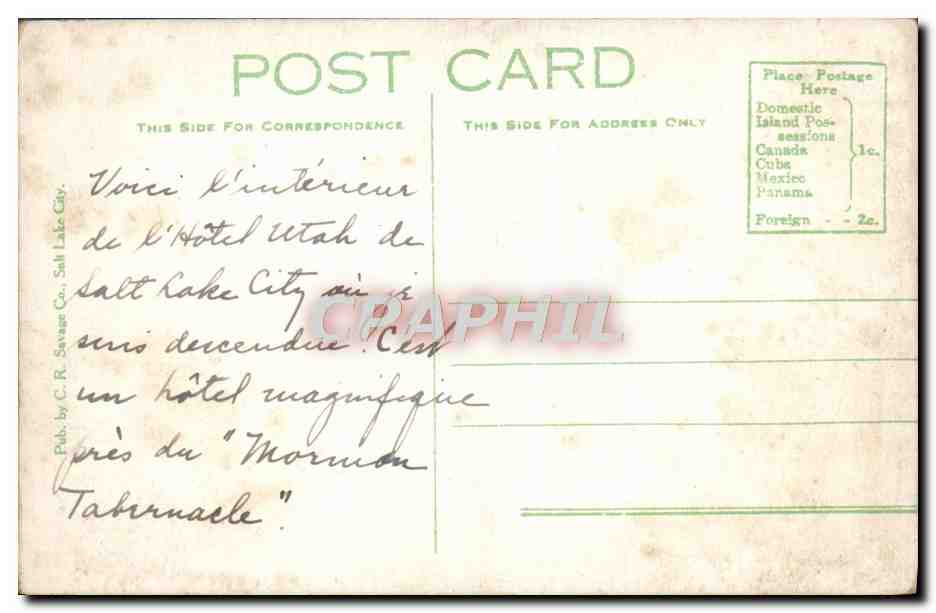 POST CARD
THIS SIDE FOR CORRESPONDENCE
THIS SIDE FOR ADDRESS ONLY
Place Postage
Here
Domestic
Island Pos-
sessions
Canada
Cuba
Mexico
Panama
1c.
Foreign - - 2c.
Pub. by C. R. Savage Co., Salt Lake City.
Voici l'intérieur
de l'Hôtel Utah de
Salt Lake City où je
suis descendue. C'est
un hôtel magnifique
près du "Mormon
Tabernacle".
CPAPHIL